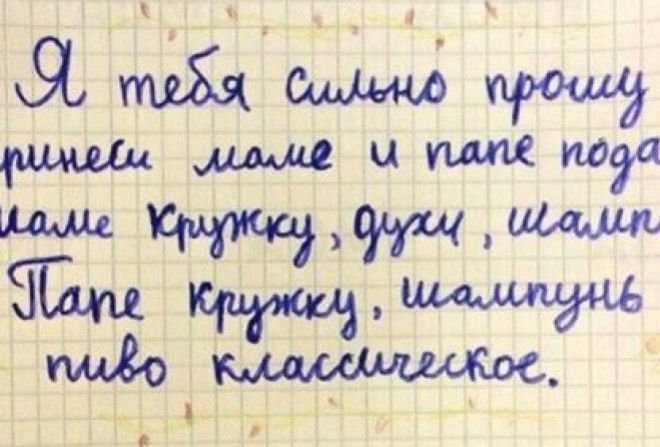 Я тебя сильно прошу
ринеси маме и папе пода
маме кружку, духи, шамп
Папе кружку, шампунь
пиво классическое.